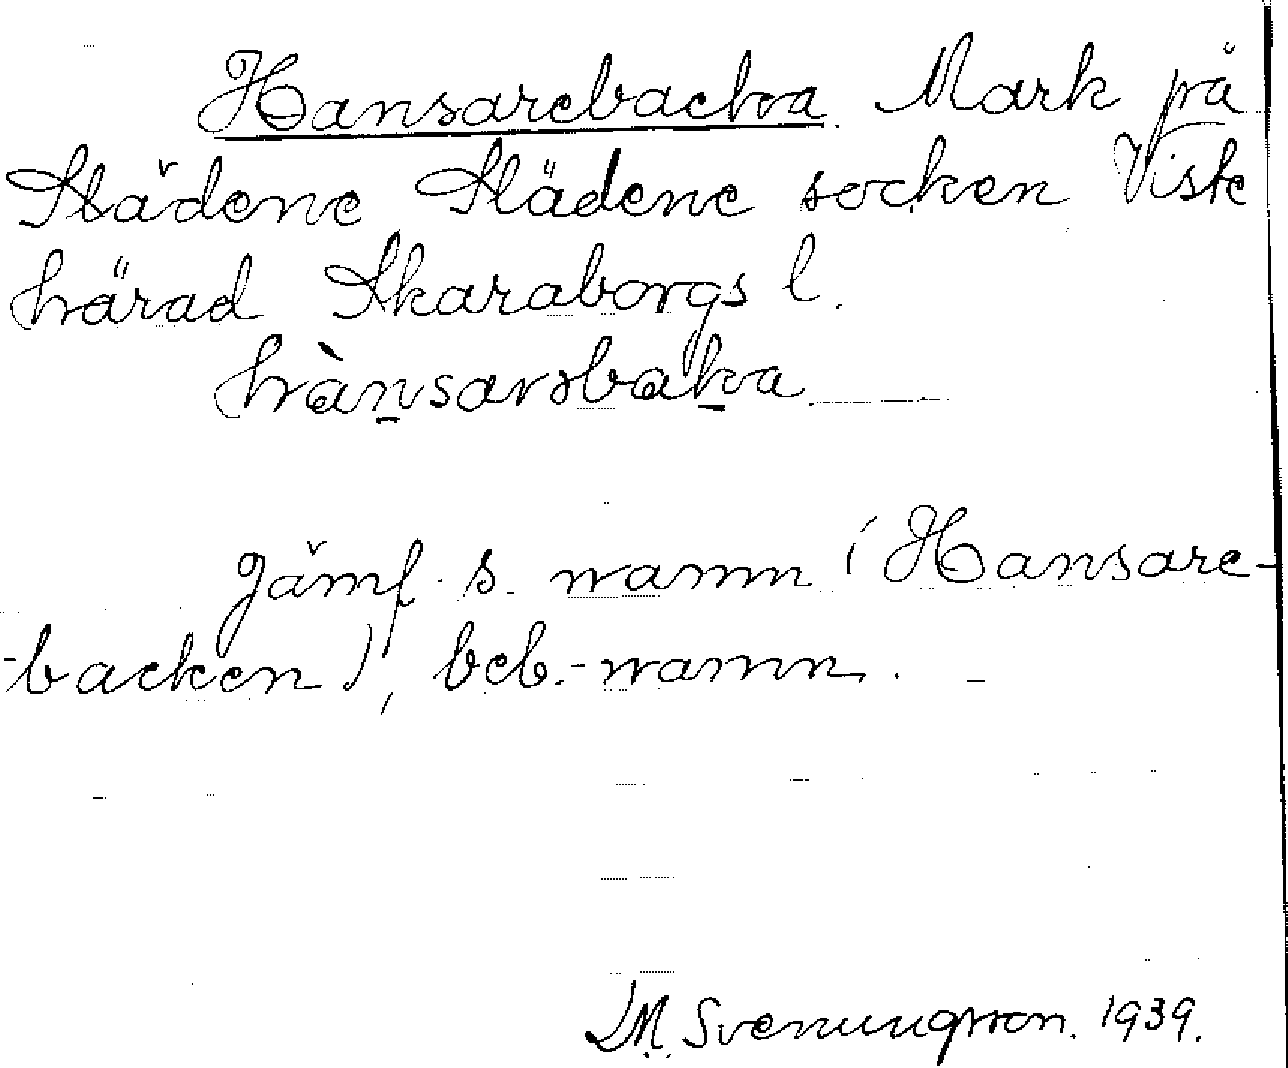 Hansarebacka Mark på
Slädene Slädene socken Viste
härad Skaraborgs l.
hànsarəbaka
Jämf. s. namn (Hansare-
-backen), beb.-namn.
M. Svenungsson. 1939.